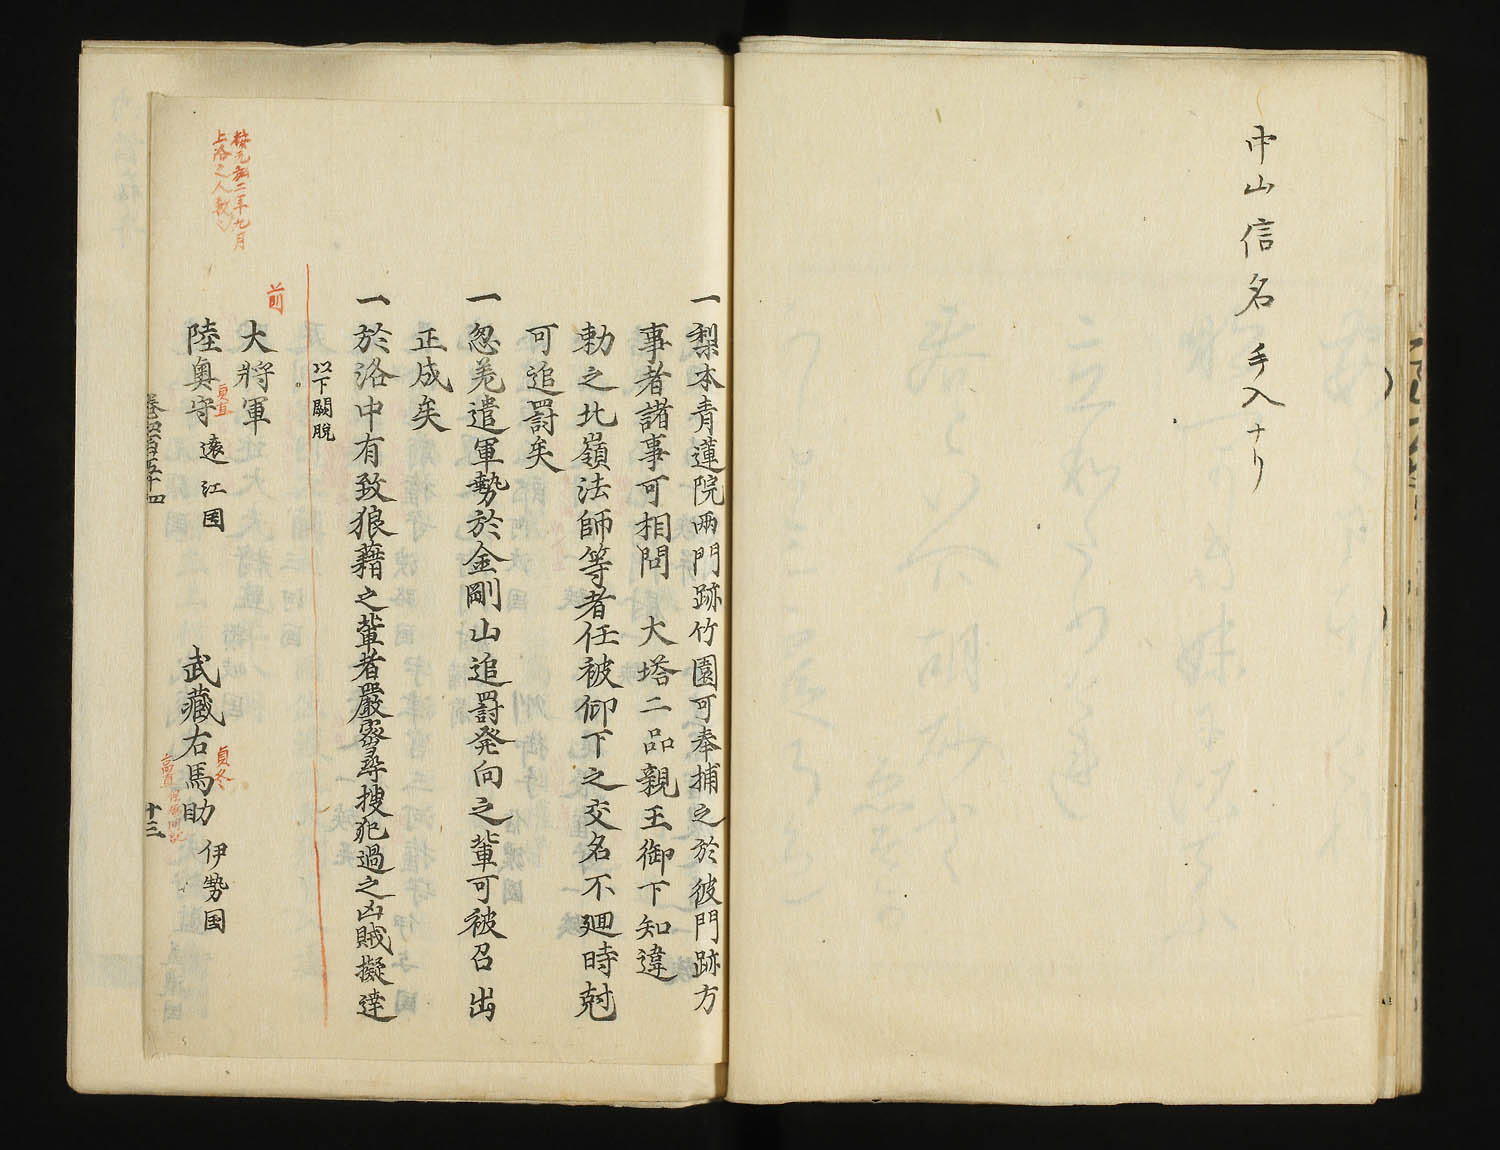 中山信名手入ナリ
一梨本青蓮院両門跡竹園可奉捕之於彼門跡方
事者諸事可相問　大塔二品親王御下知違
勅之北嶺法師等者任被仰下之交名不廻時尅
可追罰矣
一忽差遣軍勢於金剛山追罰発向之輩可被召出
正成矣
一於洛中有致狼藉之輩者厳密尋捜犯過之凶賊擬達
以下闕脱
前
按元弘二年九月
上洛之人数
大将軍
陸奥守 遠江国　武蔵右馬助 伊勢国
貞直
貞冬
巻四百五十四
十三